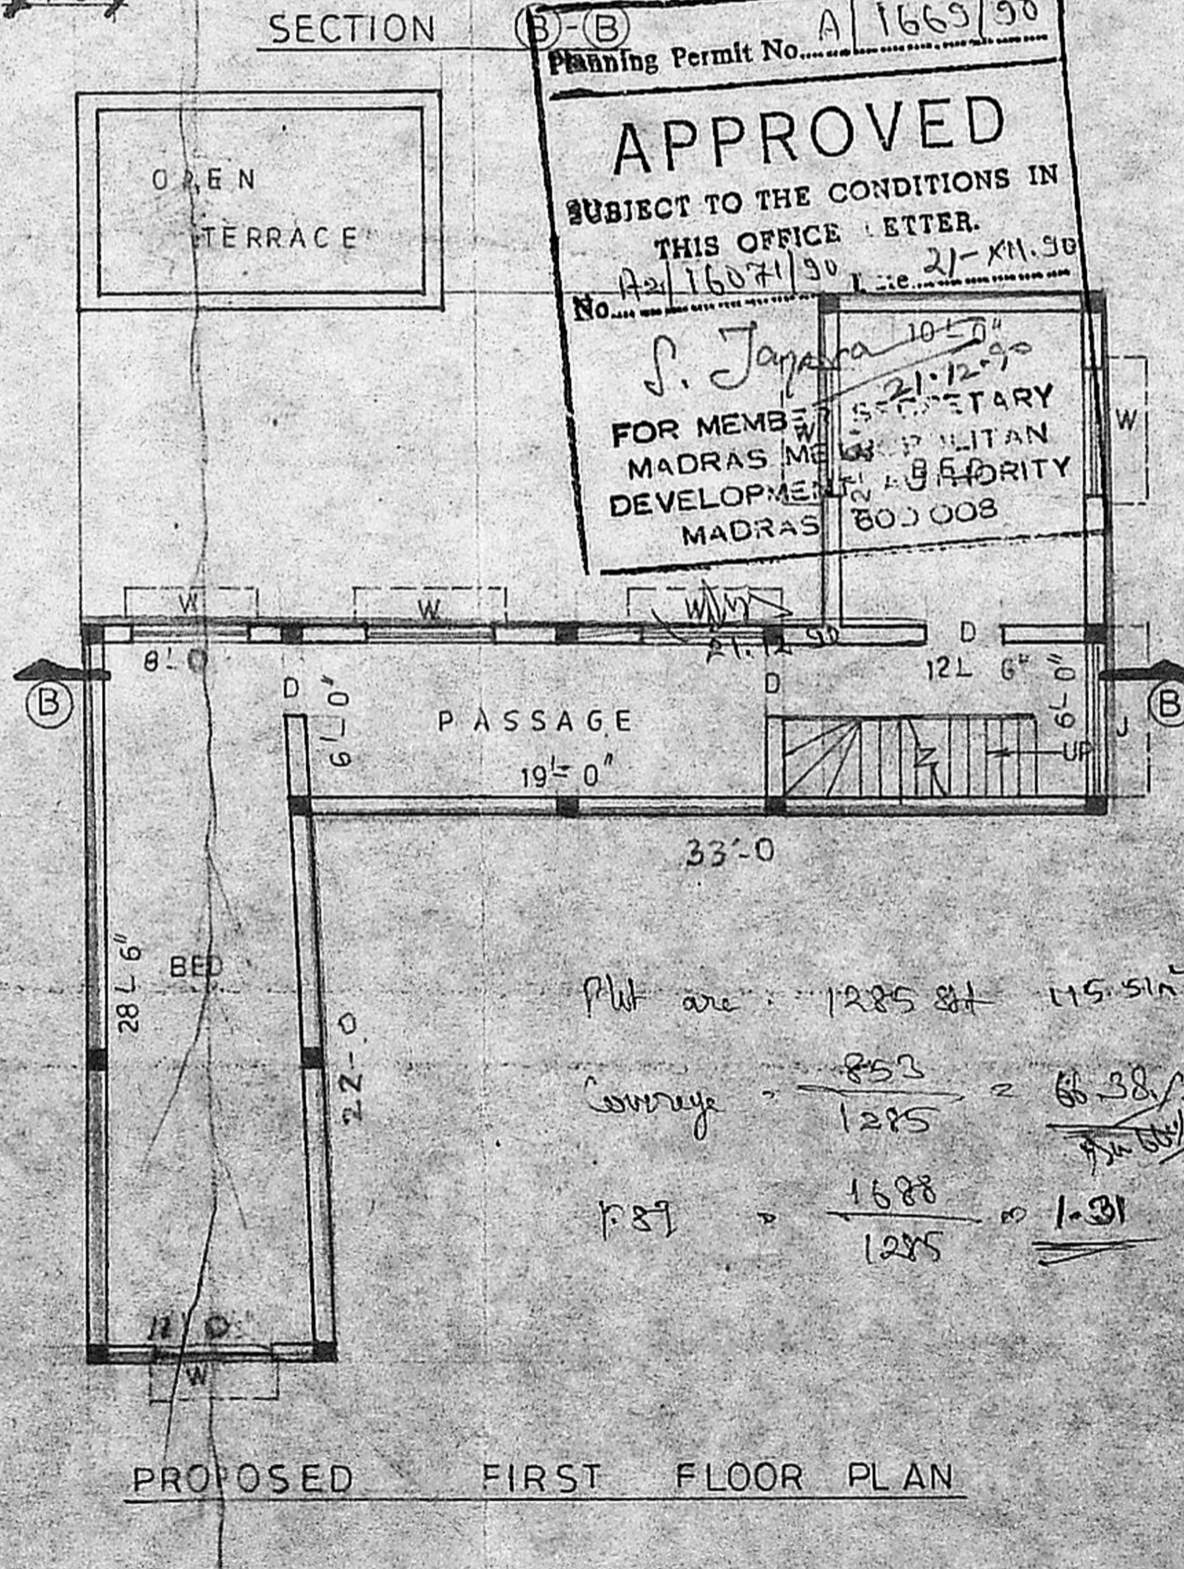 SECTION B-B
Planning Permit No. A/1669/90
APPROVED
SUBJECT TO THE CONDITIONS IN
THIS OFFICE LETTER.
No. A2/16071/90 Date 21-XII.90
21.12.90
FOR MEMBER SECRETARY
MADRAS METROPOLITAN
DEVELOPMENT AUTHORITY
MADRAS 600 008
OPEN
TERRACE
10'-0"
W
W
BED
W
W
W
21.12.90
8'-0
D
6'-0"
PASSAGE
19'-0"
D
D
12'-6"
6'-0"
J
UP
B
B
33'-0
28'-6"
BED
22'-0
11'-0"
W
Plot are : 1285 sft 115.51
Coverage = 853/1285 = 66.38%
= 1688/1285 = 1.31
PROPOSED FIRST FLOOR PLAN